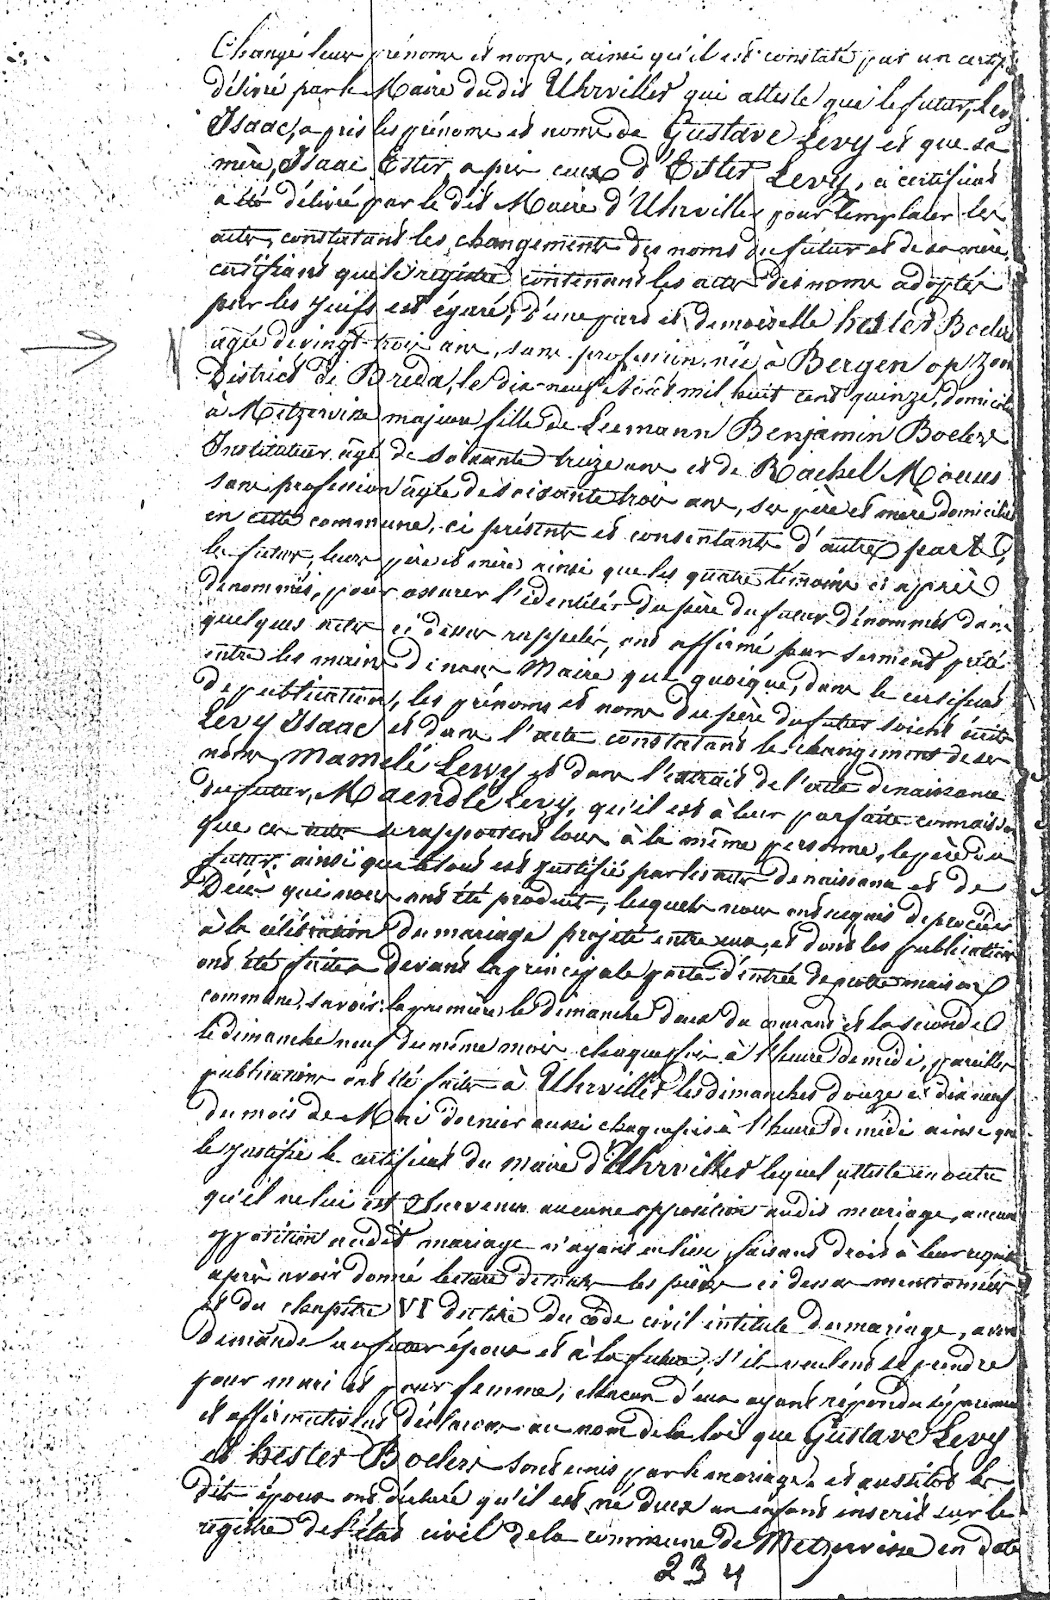 Changé leurs prénoms et noms, ainsi qu'il est constaté par un certif
délivré par le Maire dudit Uhrviller qui atteste que le futur, Levy
Isaac, a pris les prénoms et noms de Gustave Levy et que sa
mère, Isaac Ester, a pris ceux d'Ester Levy, ci certificat
a été délivré par le dit Maire d'Uhrviller pour remplacer les
actes, constatant les changements des noms du futur et de sa mère,
certifiant que le registre contenant les actes des noms adoptés
par les juifs est égaré; d'une part et demoiselle hester Boeders
agée de vingt trois ans, sans profession, née à Bergen op Zoom
District de Breda, le dix-neuf mil huit cent quinze, domicilié
à Metzervisse majeure fille de Leemann Benjamin Boeders
Instituteur agé de soixante treize ans et de Rachel Moeus
sans profession agée de soixante trois ans, ses père et mère domiciliés
en cette commune, ci présents et consentants d'autre part,
le futur, leurs père et mère ainsi que les quatre témoins ci après
dénommés, pour assurer l'identité du père du futur dénommés dans
quelques actes ci dessus rappelés, ont affirmé par serment prêté
entre les mains de nous Maire que quoique, dans le certificat
de publication, les prénoms et noms du père du futur soient écrits
Levy Isaac et dans l'acte constatant le changement de ses
noms Mamelé Levy et dans l'extrait de l'acte de naissance
du futur, Maendlé Levy, qu'il est à leur parfaite connaissance
que ces actes se rapportent tous à la même personne, le père du
futur, ainsi que le tout est justifié par les actes de naissance et de
Décès qui nous ont été produits, lesquels nous ont requis de procéder
à la célébration du mariage projeté entre eux, et dont les publications
ont été faites devant la principale porte d'entrée de notre maison
commune, savoir: la première le dimanche deux du courant et la seconde
le dimanche neuf du même mois chaque fois à l'heure de midi, pareilles
publications ont été faites à Uhrviller les dimanches douze et dix neuf
du mois de Mai dernier aussi chaque fois à l'heure de midi ainsi que
le justifie le certificat du maire d'Uhrviller lequel atteste en outre
qu'il ne lui est survenu aucune opposition audit mariage, aucune
opposition audit mariage n'ayant eu lieu, faisant droit à leur requis
après avoir donné lecture de toutes les pièces ci dessus mentionnées
et du chapitre VI du titre du code civil intitulé du mariage, avons
demandé au futur époux et à la future, s'il veulent se prendre
pour mari et pour femme, chacun d'eux ayant répondu séparément
et affirmativement déclarons au nom de la loi que Gustave Levy
et hester Boeders sont unis par le mariage. et aussitôt les
dits époux ont déclaré qu'il est né deux un enfant inscrit sur le
registre de l'état civil de la commune de Metzervisse en date
23 4